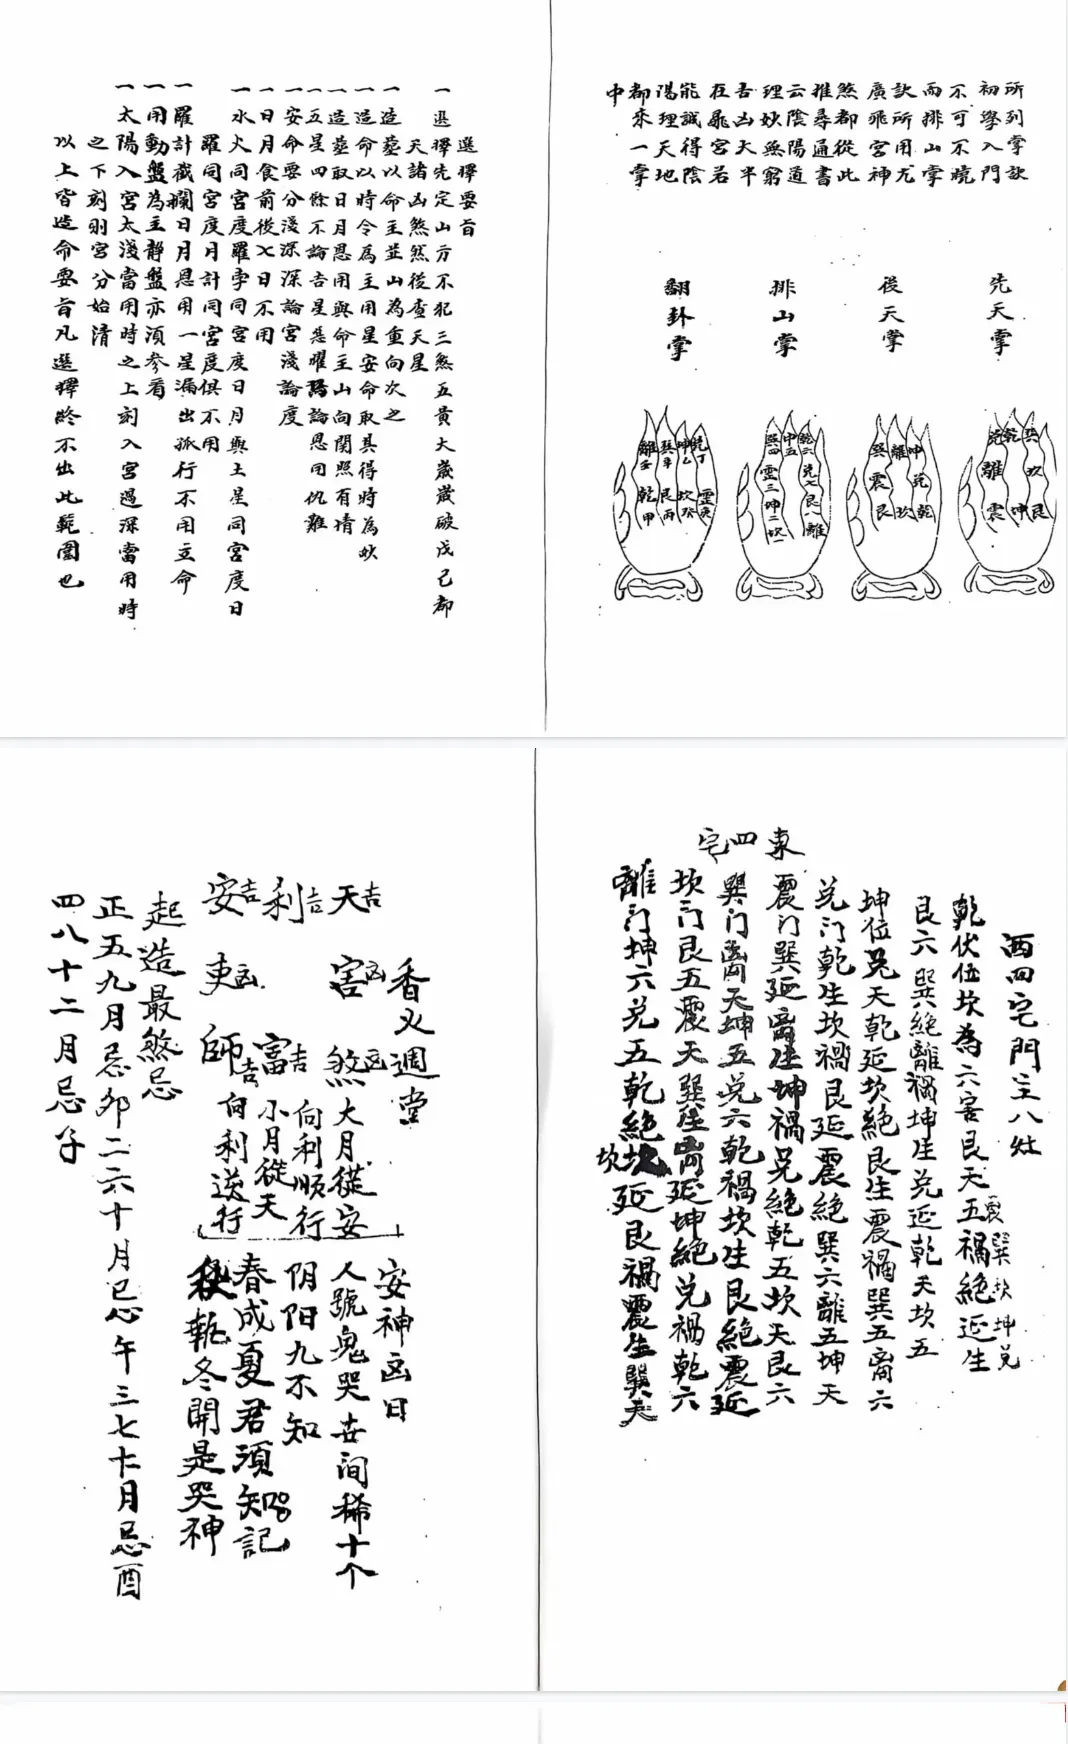 所列掌訣
初學入門
不可不曉
而排山掌
訣所用尤
廣飛宮神
煞都從此
推尋通書
云陰陽道
理妙無窮
吉凶大半
在飛宮若
能識得陰
陽理天地
都來一掌
中
先天掌
後天掌
排山掌
翻卦掌
選擇要旨
一選擇先定山方不犯三煞五黃大歲歲破戊己都
天諸凶煞然後查天星
一造葬以命主並山為重向次之
一造命以時令為主用星安命取其得時為妙
一造葬取日月恩用與命主山向関照有情
一五星四餘不論吉星惡曜專論恩用仇難
一安命要分淺深深論宮淺論度
一日月食前後七日不用
一水火同宮度羅孛同宮度日月與土星同宮度日
羅同宮度月計同宮度俱不用
一羅計截攔日月恩用一星漏出孤行不用立命
一用動盤為主靜盤亦須參看
一太陽入宮太淺當用時之上刻入宮過深當用時
之下刻則宮分始清
以上皆造命要旨凡選擇終不出此範圍也
西四宅門主八灶
乾伏位坎為六害艮天五禍絕延生
震巽坎坤兑
艮六巽絕離禍坤生兑延乾天坎五
坤位兑天乾延坎絕艮生震禍巽五离六
兑门乾生坎禍艮延震絕巽六離五坤天
東四宅
震门巽延离生坤禍兑絕乾五坎天艮六
巽门离天坤五兑六乾禍坎生艮絕震延
坎门艮五震天巽生离延坤絕兑禍乾六
離门坤六兑五乾絕坎延艮禍震生巽天
坎
香火週堂
天吉 害凶 煞凶
利吉 富吉
安吉 吏凶 師吉
大月從安
向利順行
小月從天
向利送行
安神凶日
人號鬼哭世间稀十个
阴阳九不知
春成夏君須知記
秋執冬開是哭神
起造最煞忌
正五九月忌卯二六十月忌午三七十一月忌酉
四八十二月忌子